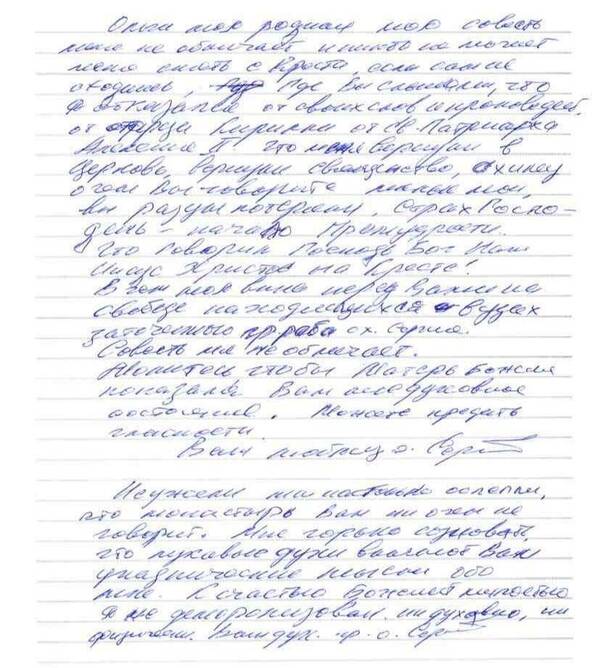 Ольги моя родная мою совесть
меня не обличает и никто не может
меня снять с Креста, если сам не
Где Вы слышали, что
я отказался от своих слов и проповедей,
от Кирилла от Св. Патриарха
Алексия II что меня вернули в
Церковь, вернули священство, схиму
о чем Вы говорите милые мои,
вы разум потеряли. Страх Госпо-
день - начало Премудрости.
Что Говорил Господь Бог Наш
Иисус Христос на Кресте!
В чем моя вина перед Вами на
свободе находящихся в узах
заточенного раба сх. Сергия.
Совесть мя не обличает.
Молитесь чтобы Матерь Божия
показала Вам мое духовное
состояние. Можете предать
гласности.
Ваш о. Сергий
Неужели вы настолько ослепли,
что монастырь Вам ни о чем не
говорит. Мне горько сознавать,
что лукавые духи влагают Вам
мысли обо
мне. К счастью Божией милостью
я не деморализован ни духовно, ни
физически. Ваш дух. о. Сергий